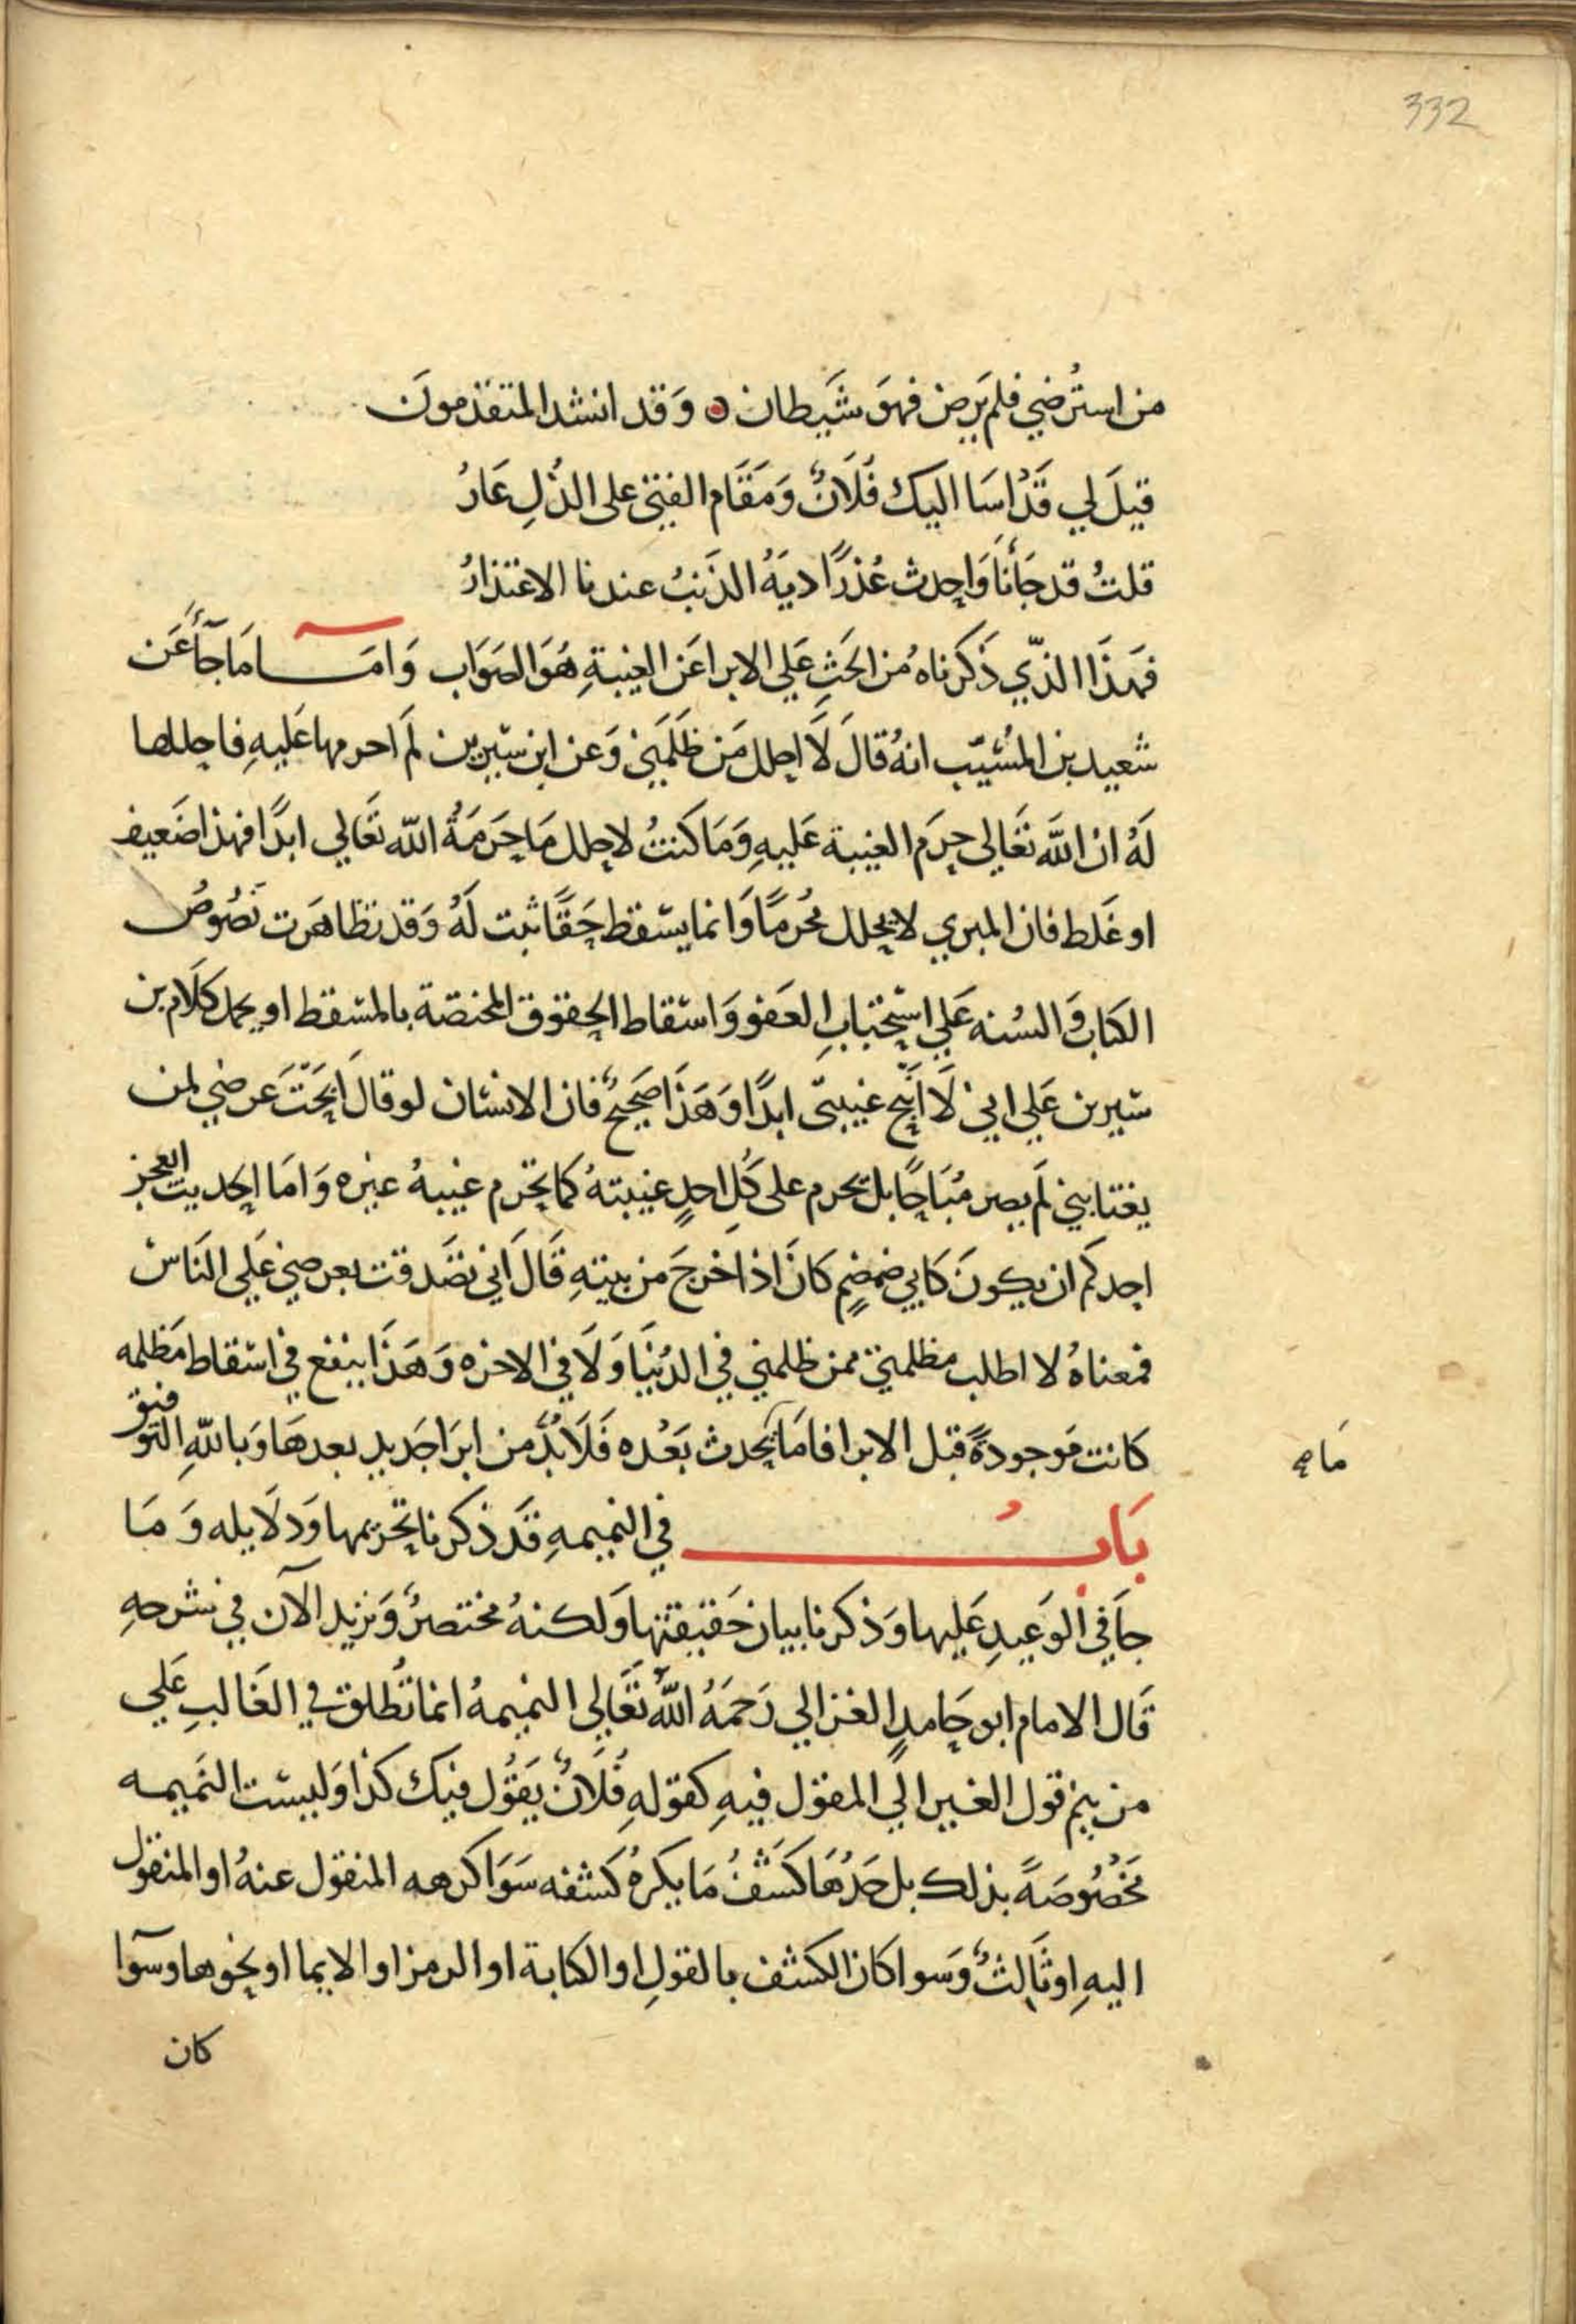 332
من استُرضي فلم يَرض فهوَ شَيطان وَقد انشد المتقدمونَ
قيلَ لي قَدْ اسَا اليك فُلَانٌ وَمَقَام الفتى على الذُلِ عَارُ
قلتُ قد جَأنَا وَاحدث عُذرًا ديَهُ الذَنبُ عندنا الاعتذارُ
فهَذَا الذّي ذَكَرناهُ من الحَثِ عَلي الابراعَن الغيبةِ هُوَ الصَوَاب وَامَا مَا جآَءَ عَن
سَعيد بن المُسَيّب انهُ قالَ لَا احلل مَن ظَلَمَني وَعن ابن سيرين لَم احرمها عَليهِ فاحللها
لَهُ انْ اللّهَ تعَالي حرَم الغيبة عَليهِ وَمَا كَنتُ لاحلل مَا حَرمَهُ اللّه تعَالي ابدًا فهذا ضَعيف
او غَلط فان المبري لا يحلل مُحرمًا وَانما يسقط حَقًا ثبت لَهُ وَقد تظاهَرت نصُوصُ
الكتاب وَالسُنه عَلي استحبابِ العَفو وَاسقاط الحقوق المختصة بالمسقط او يحمل كلَام بن
سيرين عَلي اني لَا اُبيح غيبتى ابدًا وَهَذَا صَحيحٌ فان الانسَان لو قالَ ابحَتَ عَرضي لمن
يغتابني لَم يصر مُبَاحًا بل يحرم على كُلِ احدٍ غيبتهُ كما تحرم غيبهُ غيره وَامَا الحديث ايعجز
احدكَم ان يكونَ كَابي ضمضم كَانَ اذا خَرجَ من بيتهِ قَالَ اني تصَدقت بعرضي عَلي النَاسْ
فمعناهُ لا اطلب مظلمتي ممن ظلمني في الدُنيَا وَلَا في الاخره وَهَذَا ينفع في اسقاط مَظلمه
كانت مَوجودةً قبل الابرا فامَا يحدث بَعْده فَلَابُدّ من ابرَا جَديدٍ بعدهَا وَباللّهِ التوفيق
مَا صح
بَابُ في النميمهِ قَد ذكرنا تحريمها وَدلَايله وَمَا
جاَ في الوَعيدِ عَليها وَذكرنا بيان حَقيقتها وَلكنهُ مختصرٌ وَنزيد الآن في شرحهِ
قَال الامام ابو حَامدٍ الغزالي رَحمَهُ اللّهُ تعَالي النميمهُ انما تُطلق في الغَالبِ عَلي
من ينم قول الغير الَي المقول فيهِ كقولهِ فُلَانٌ يَقوُل فيك كذا وَليست النَميمه
مَخصُوصَةً بذلك بل حَدُهَا كَشفُ مَا يكرهُ كَشفه سَوَا كرهه المنقول عنهُ او المنقول
اليهِ او ثَالثٌ وَسوا كان الكَشف بالقولِ او الكتابة او الرمز او الايما او نحوها وسَوآ
كان